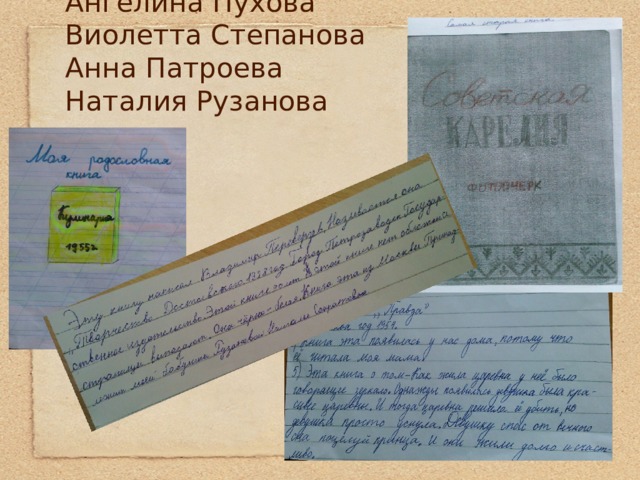 Ангелина Пухова
Виолетта Степанова
Анна Патроева
Наталия Рузанова
Моя родословная
книга
Кулинария
1955г
Самая старая книга
Советская
КАРЕЛИЯ
ФОТООЧЕРК
Эту книгу написал Владимир Называется она
"Творчество Достоевского 1928 год. Город Петрозаводск Государ-
ственное издательство. Этой книге лет. В этой книге нет обложки и
страницы выпадают. Она чёрно-белая. Книга эта из Москвы. Принад-
лежит моей бабушке Рузановой
"Правда"
год 1959.
книга эта появилась у нас дома, потому что
её читала моя мама.
5) Эта книга о том, как жила царевна у неё было
говорящее зеркало. Однажды появилась девушка была кра-
сивее царевны. И тогда царевна решила её убить, но
девушка просто уснула. Девушку спас от вечного
сна поцелуй принца. И они жили долго и счаст-
ливо.